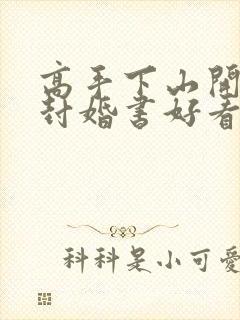 高手下山開
封婚書好看
科科是小可愛